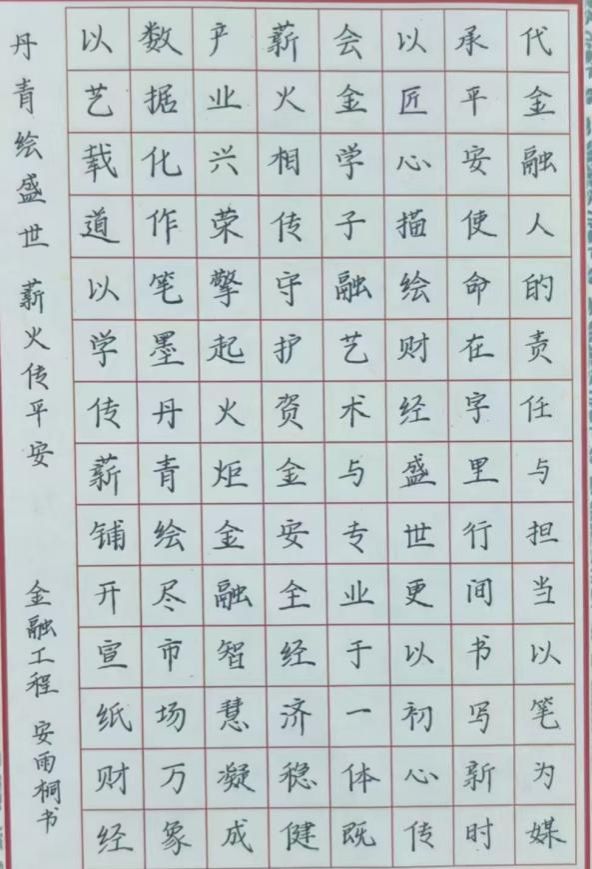 丹青绘盛世 薪火传平安
金融工程 安雨桐书
以艺载道以学传薪铺开宣纸财经
数据化作笔墨丹青绘尽市场万象
产业兴荣擎起火炬金融智慧凝成
薪火相传守护贺金安全经济稳健
会金学子融艺术与专业于一体既
以匠心描绘财经盛世更以初心传
承平安使命在字里行间书写新时
代金融人的责任与担当以笔为媒